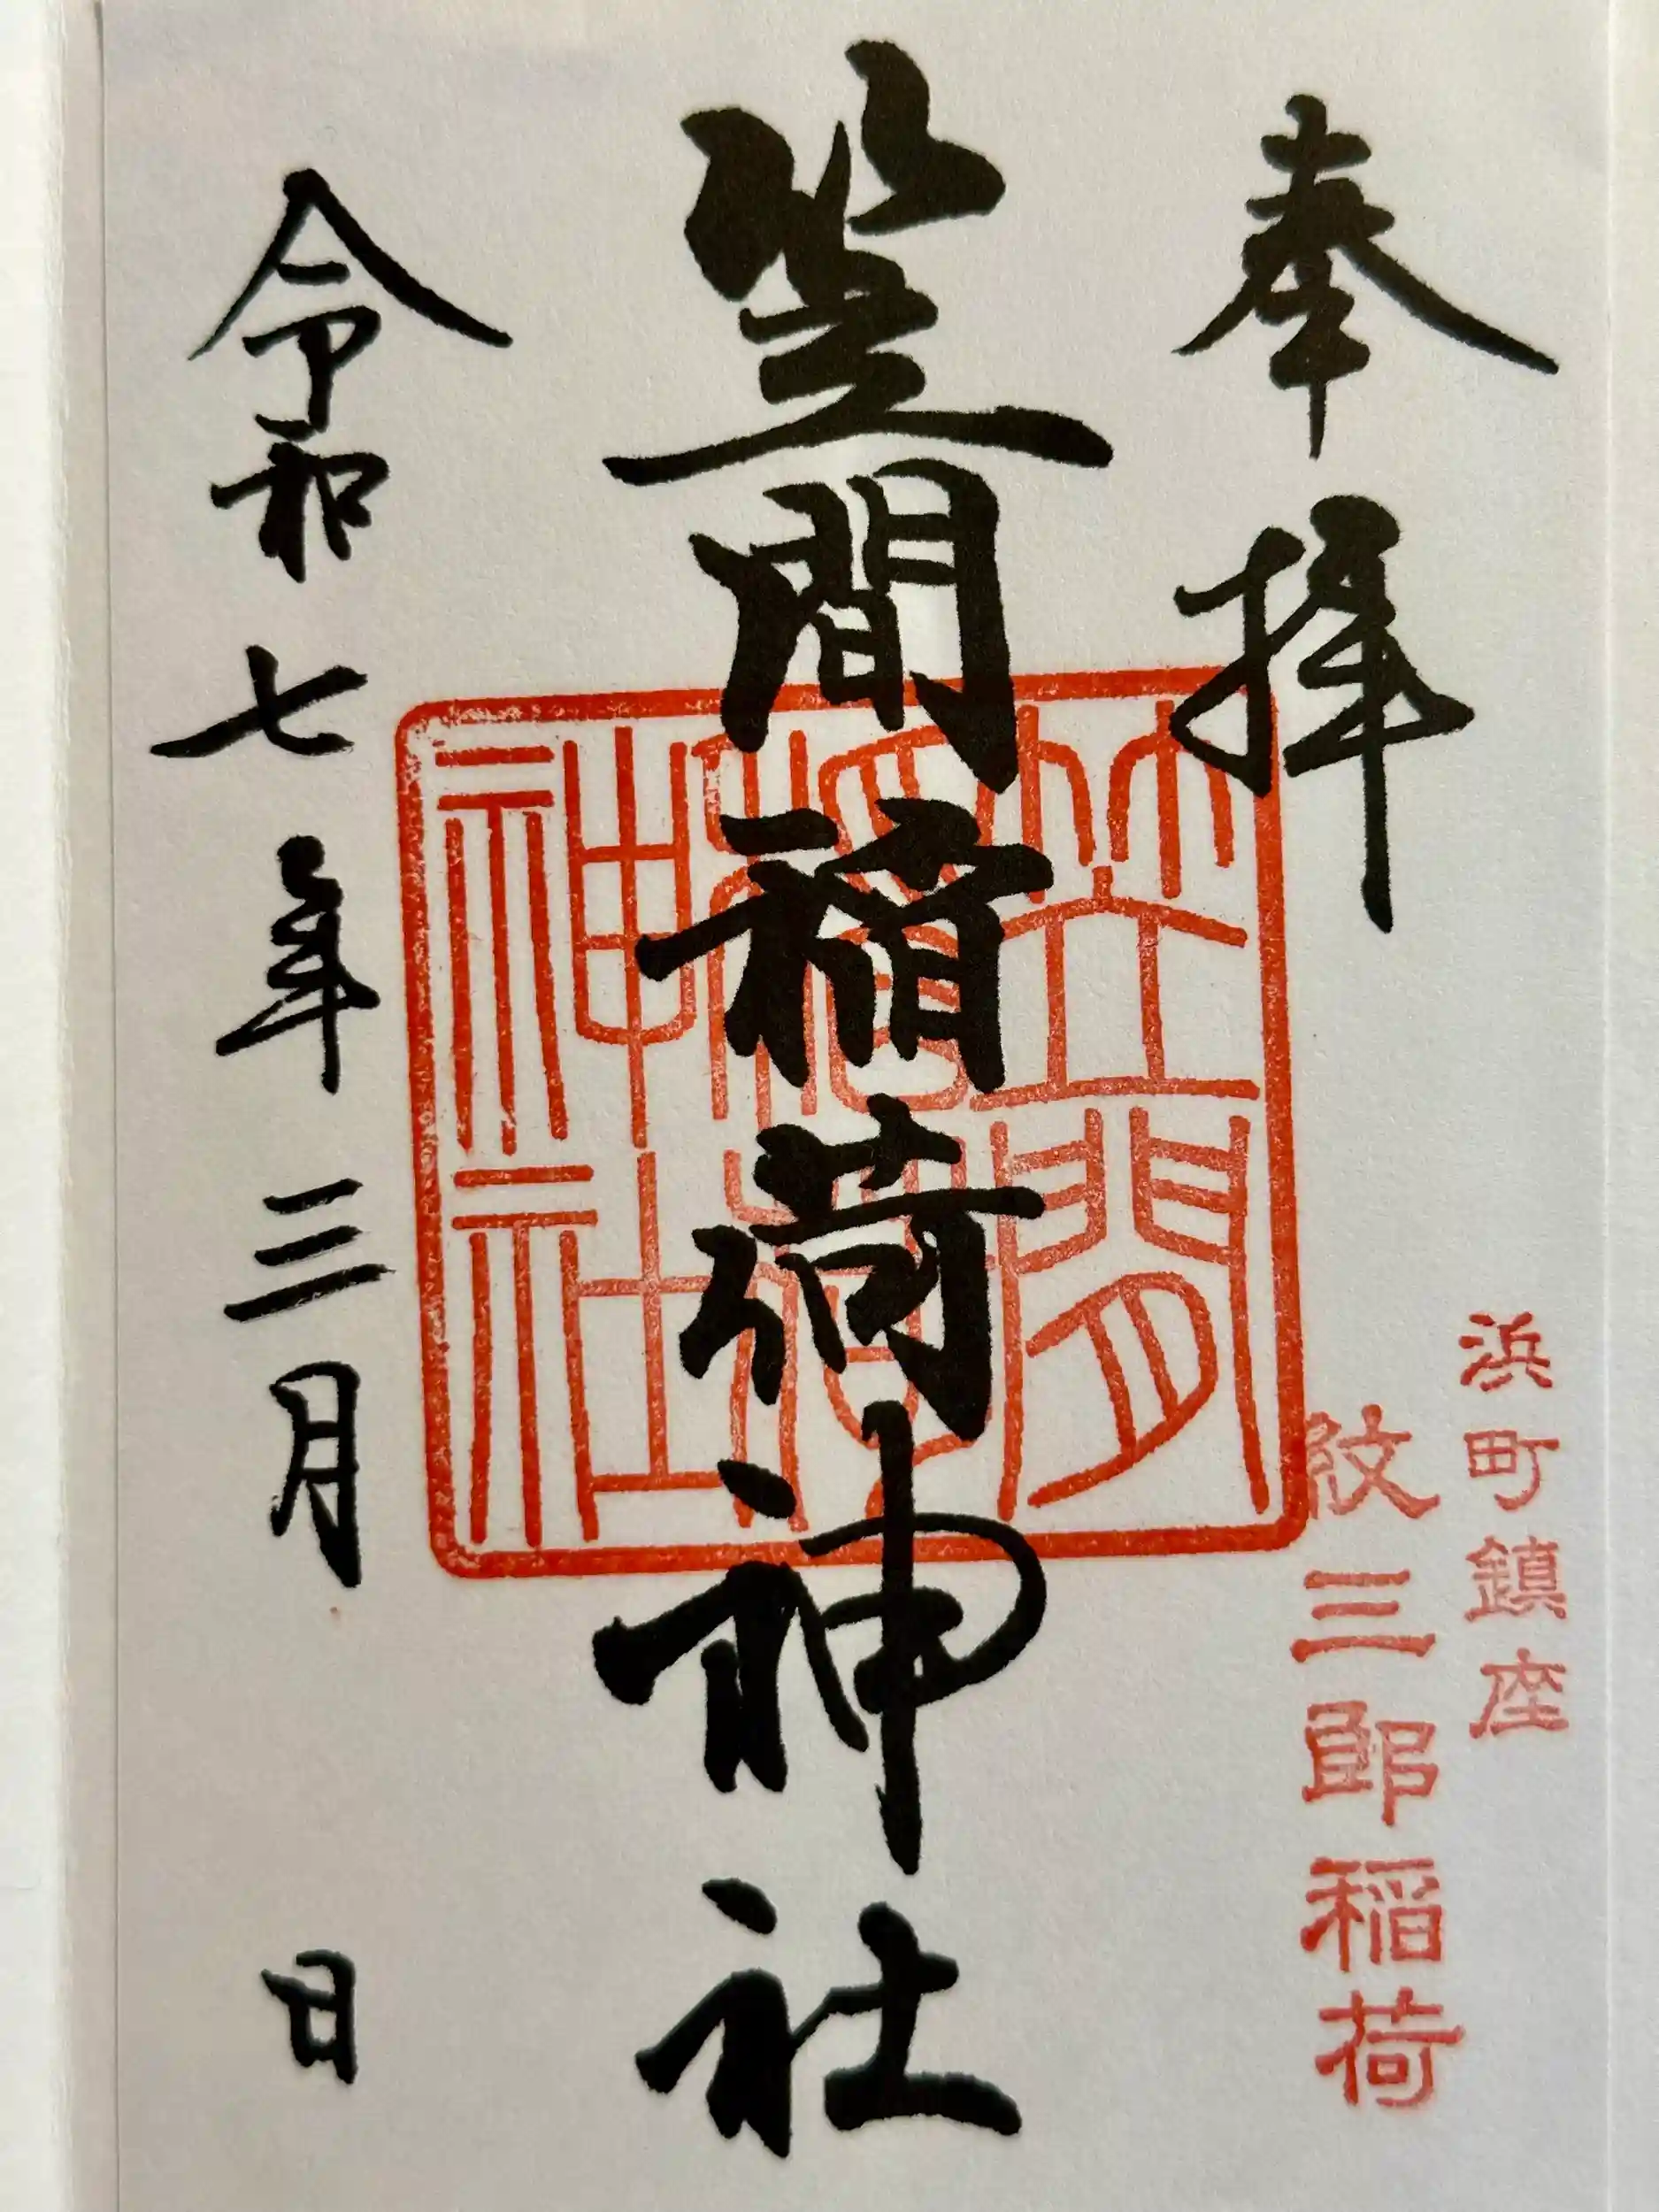 奉拝
浜町鎮座
紋三郎稲荷
笠間稲荷神社
笠間
稲荷
神社
令和七年三月 日